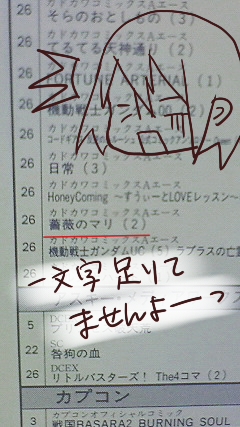 カドカワコミックスAエース
26 そらのおとしもの (3)
カドカワコミックスAエース
26 てるてる天神通り (2)
カドカワコミックスAエース
26 FORTUNE ARTERIAL (1)
カドカワコミックスAエース
26 機動戦士ガンダム00 (2)
26
カドカワコミックスAエース
26 日常 (3)
カドカワコミックスAエース
26 HoneyComing ～すうぃーとLOVEレッスン～
カドカワコミックスAエース
26 薔薇のマリ (2)
カドカワコミックスAエース
26 機動戦士ガンダムUC
ラプラスの亡霊
一文字足りて
ませんよーっ
5
SC
22 咎狗の血
DCEX
26 リトルバスターズ! The4コマ (2)
カプコン
カプコンオフィシャルコミック
3 戦国BASARA2 BURNING SOUL